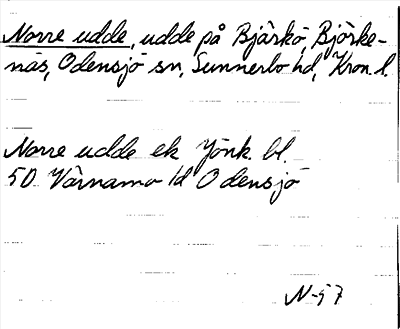 Norre udde, udde på Bjärkö, Björke-
näs, Odensjö sn, Sunnerbo hd, Kron. l.
Norre udde ek Jönk. bl.
50 Värnamo ld Odensjö
N-57